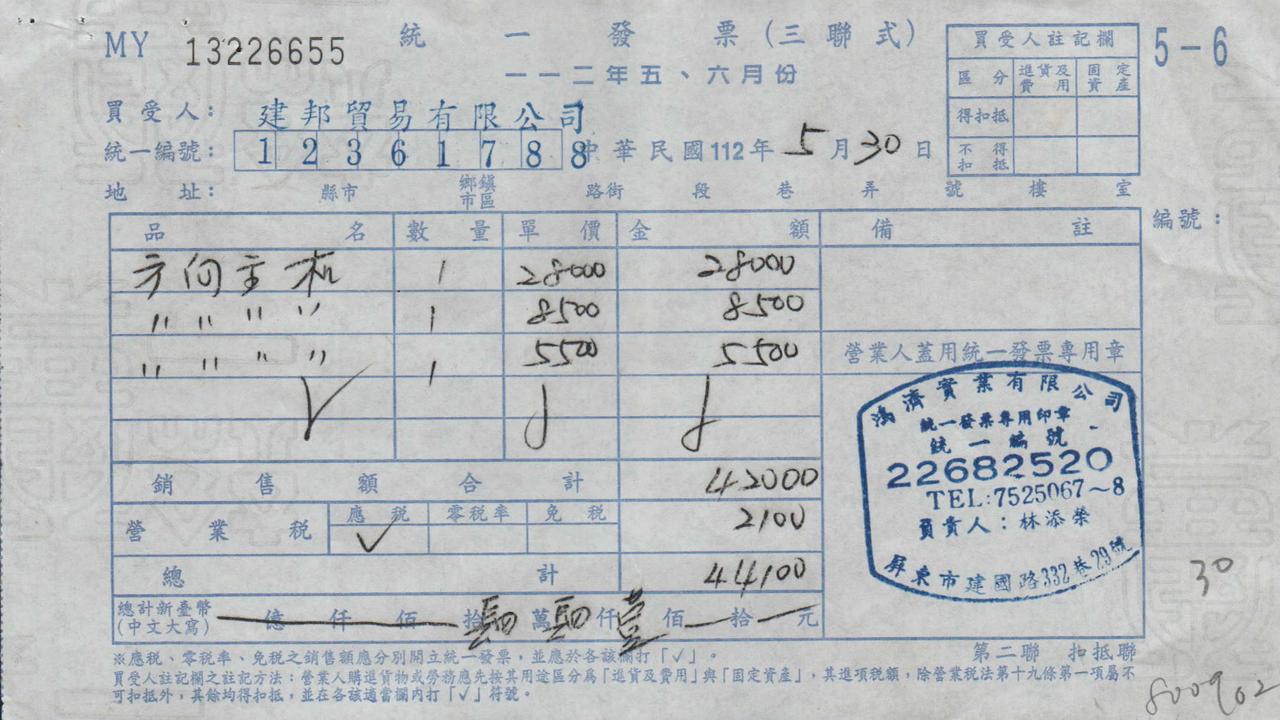 MY 13226655 統一發票(三聯式) 5-6
一一二年五、六月份
買受人註記欄
區分 進貨及費用 固定資產
得扣抵
不得扣抵
買受人: 建邦貿易有限公司
統一編號: 12361788 中華民國112年5月30日
地址: 縣市 鄉鎮市區 路街 段 巷 弄 號 樓 室
品名 數量 單價 金額 備註 編號:
方向主机 1 28000 28000
" " " " 1 8500 8500
" " " " 1 5500 5500
營業人蓋用統一發票專用章
銷售額合計 42000
營業稅 應稅 ✓ 零稅率 免稅 2100
總計 44100
總計新臺幣(中文大寫) 億 仟 佰 拾 肆 萬 肆 仟 壹 佰 拾 元
鴻濟實業有限公司
統一發票專用印章
統一編號
22682520
TEL:7525067~8
負責人:林添榮
屏東市建國路332巷29號
30
第二聯 扣抵聯
※應稅、零稅率、免稅之銷售額應分別開立統一發票,並應於各該欄打「✓」。
買受人註記欄之註記方法:營業人購進貨物或勞務應先按其用途區分為「進貨及費用」與「固定資產」,其進項稅額,除營業稅法第十九條第一項屬不
可扣抵外,其餘均得扣抵,並在各該適當欄內打「✓」符號。
800902